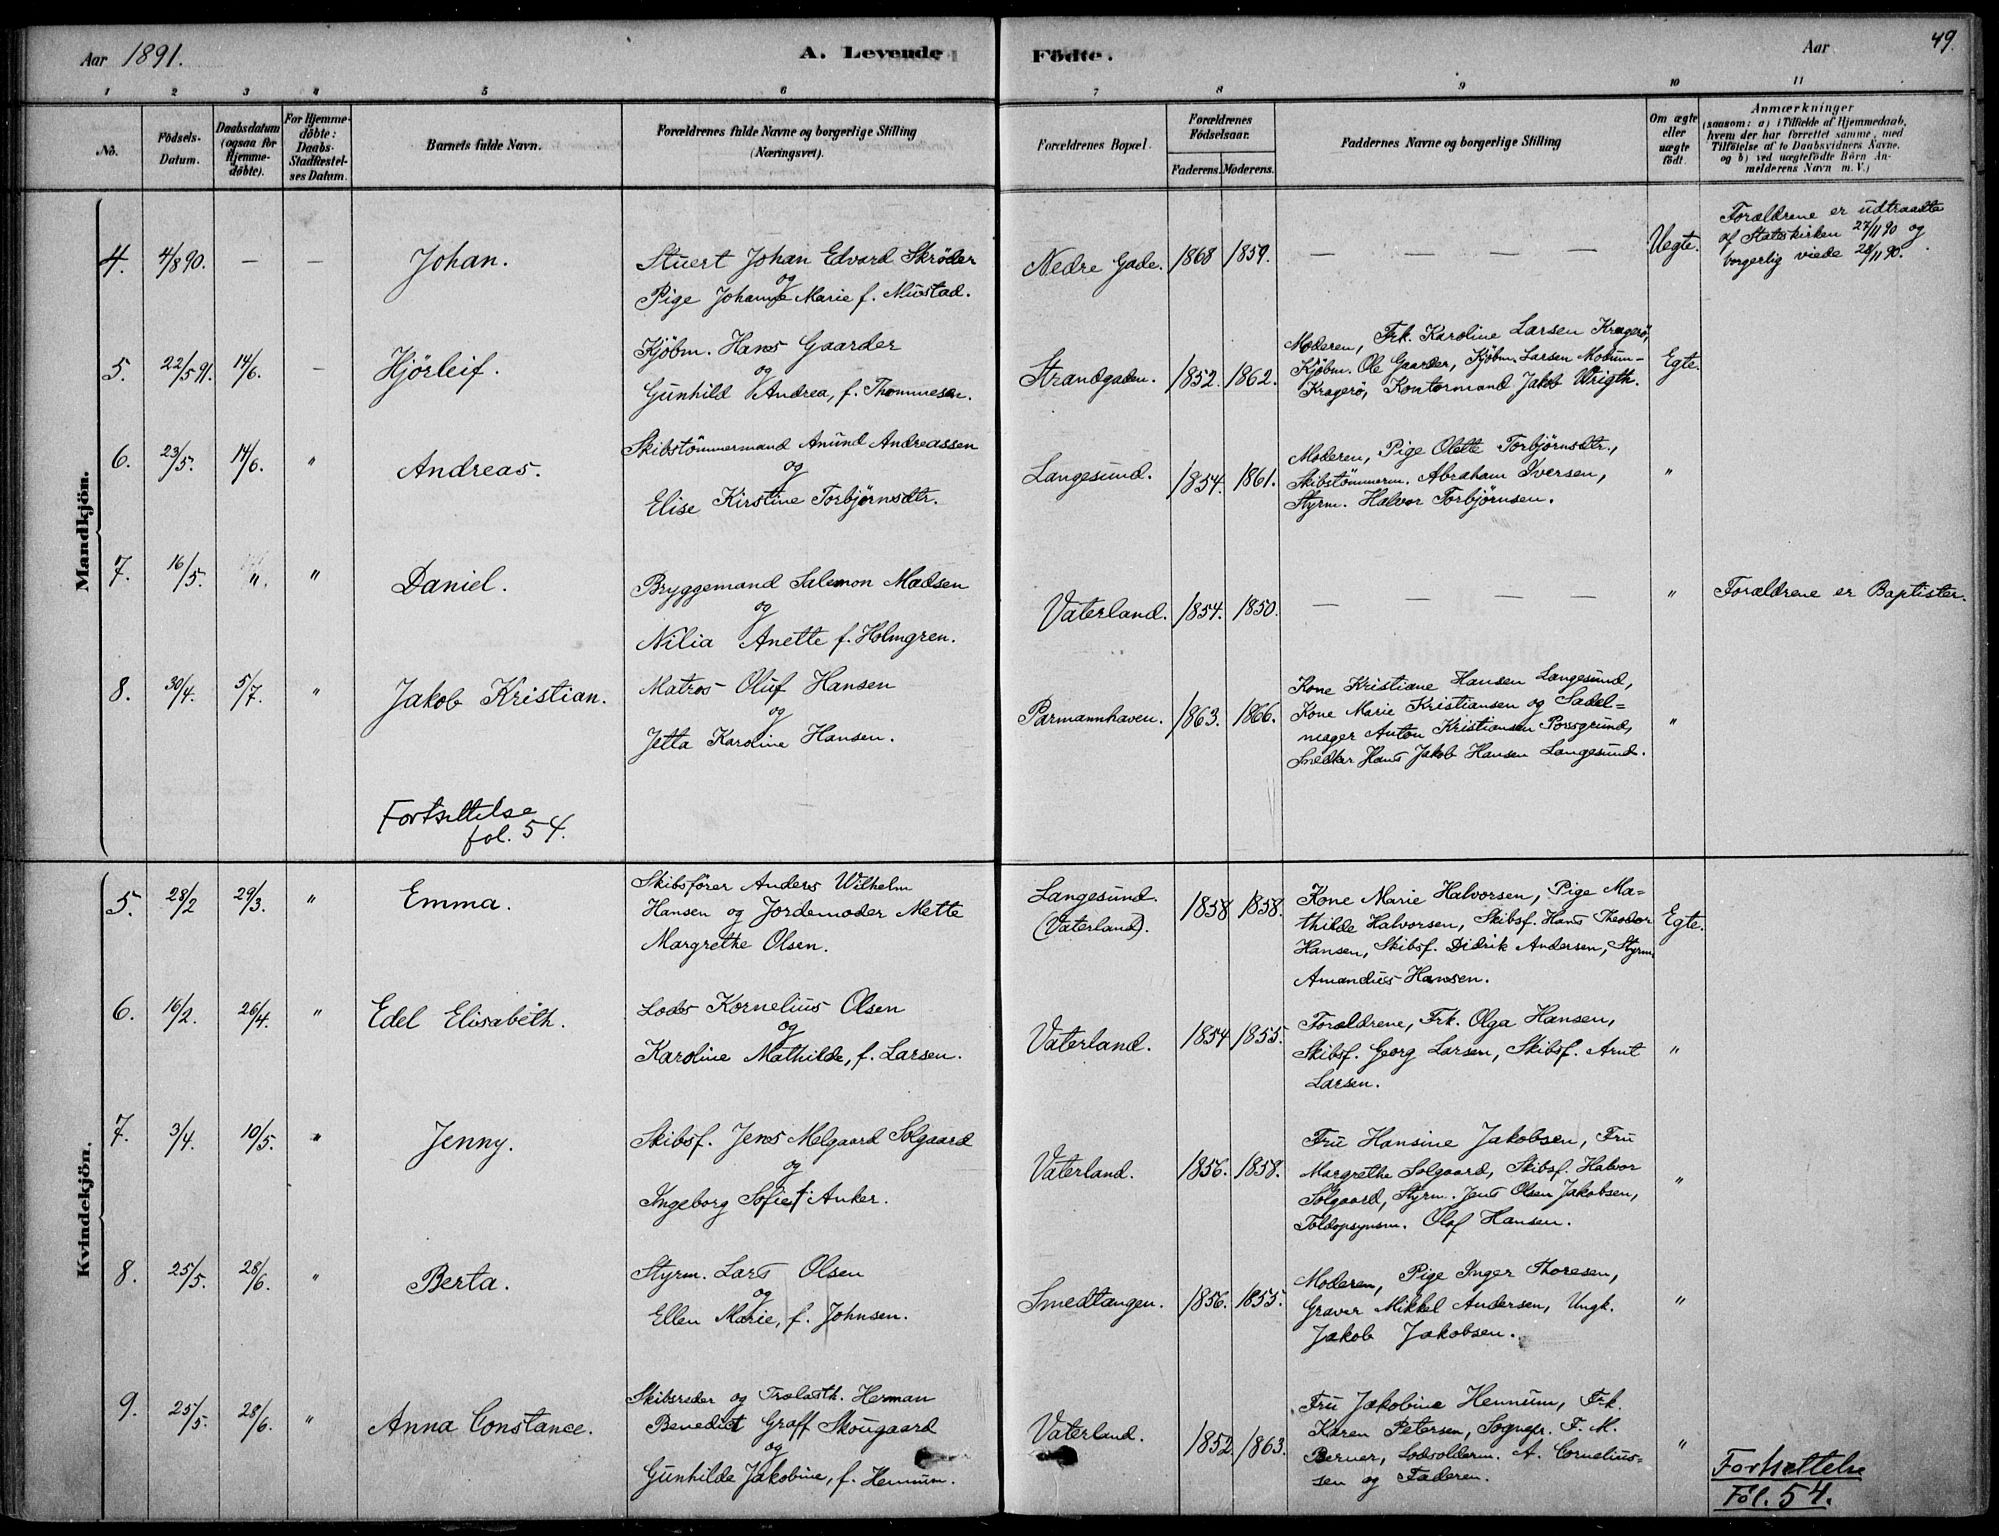 Aar 1891.
A. Levende
Födte.
Aar
49.
1 2 3 4 5 6 7 8 9 10 11
No.
Födsels-
Datum.
Daabsdatum
(ogsaa for
Hjemme-
döbte).
For Hjemme-
döbte:
Daabs-
Stadfæstel-
ses Datum.
Barnets fulde Navn.
Forældrenes fulde Navne og borgerlige Stilling
(Næringsvei).
Forældrenes Bopæl.
Forældrenes
Födselsaar.
Faderens. Moderens.
Faddernes Navne og borgerlige Stilling
Om ægte
eller
uægte
født.
Anmærkninger
(saasom: a) i Tilfælde af Hjemmedaab,
hvem der har forrettet samme, med
Tilføielse af to Daabsvidners Navne,
og b) ved uægtefødte Börn An-
melderens Navn m. V.)
Mandkjön.
4. 4/8 90. — — Johan.
Stuert Johan Edvard Skrøder
og
Pige Johanne Marie f. Mustad.
Nedre Gade. 1868 1859. — — — — Uegte.
Forældrene er udtraadte
af Statskirken 27/11 90 og
borgerlig viede 28/11 90.
5. 22/5 91. 14/6. — Hjörleif.
Kjöbm. Hans Gaarder
og
Gunhild Andrea, f. Thommesen.
Strandgaden. 1852. 1862.
Moderen, Frk. Karoline Larsen Kragerö,
Kjöbm. Ole Gaarder, Kjöbm. Larsen Modum-
Kragerö, Kontormand Jakob Wrigth.
Egte.
6. 23/5. 14/6. " Andreas.
Skibstömmermand Anund Andreassen
og
Elise Kirstine Torbjörnsdtr.
Langesund. 1854. 1861.
Moderen, Pige Olette Torbjörnsdtr.,
Skibstömmerm. Abraham Iversen,
Styrm. Halvor Torbjörnsen.
"
7. 16/5. ". " Daniel.
Bryggemand Salemon Madsen
og
Nilia Anette f. Holmgren.
Vaterland. 1854. 1850. — — — — "
Forældrene er Baptister.
8. 30/4. 5/7. " Jakob Kristian.
Matros Oluf Hansen
og
Jetta Karoline Hansen.
Parmannhaven. 1863. 1866.
Kone Kristiane Hansen Langesund,
Kone Marie Kristiansen og Sadel=
mager Anton Kristiansen Porsgrund,
Snedker Hans Jakob Hansen Langesund.
"
Fortsettelse
fol. 54.
Kvindekjön.
5. 28/2 29/3. " Emma.
Skibsförer Anders Wilhelm
Hansen og Jordemoder Mette
Margrethe Olsen.
Langesund.
(Vaterland).
1858 1858.
Kone Marie Halvorsen, Pige Ma=
thilde Halvorsen, Skibsf. Hans Theodor
Hansen, Skibsf. Didrik Andersen, Styrm.
Amandus Hansen.
Egte.
6. 16/2. 26/4. " Edel Elisabeth.
Lods Kornelius Olsen
og
Karoline Mathilde, f. Larsen.
Vaterland. 1854 1855.
Forældrene, Frk. Olga Hansen,
Skibsf. Georg Larsen, Skibsf. Arnt
Larsen.
"
7. 3/4. 10/5. " Jenny.
Skibsf. Jens Melgaard Solgaard
og
Ingeborg Sofie f. Anker.
Vaterland. 1856. 1858.
Fru Hansine Jakobsen, Fru
Margrethe Solgaard, Skibsf. Halvor
Solgaard, Styrm. Jens Olsen Jakobsen,
Toldopsynsm. Olaf Hansen.
"
8. 25/5. 28/6. " Berta.
Styrm. Lars Olsen
og
Ellen Marie, f. Johnsen.
Smedtangen. 1856. 1855.
Moderen, Pige Inger Thoresen,
Graver Mikkel Andersen, Ungk.
Jakob Jakobsen.
"
9. 25/5. 28/6. " Anna Constance.
Skibsreder og Trælasth. Herman
Benedict Graff Skougaard
og
Gunhilde Jakobine, f. Hennum.
Vaterland. 1852 1863.
Fru Jakobine Hennum, Frk.
Karen Petersen, Sognepr. F. M.
Berner, Lodsolderm. A. Cornelius-
sen og Faderen.
"
Fortsettelse
Fol. 54.